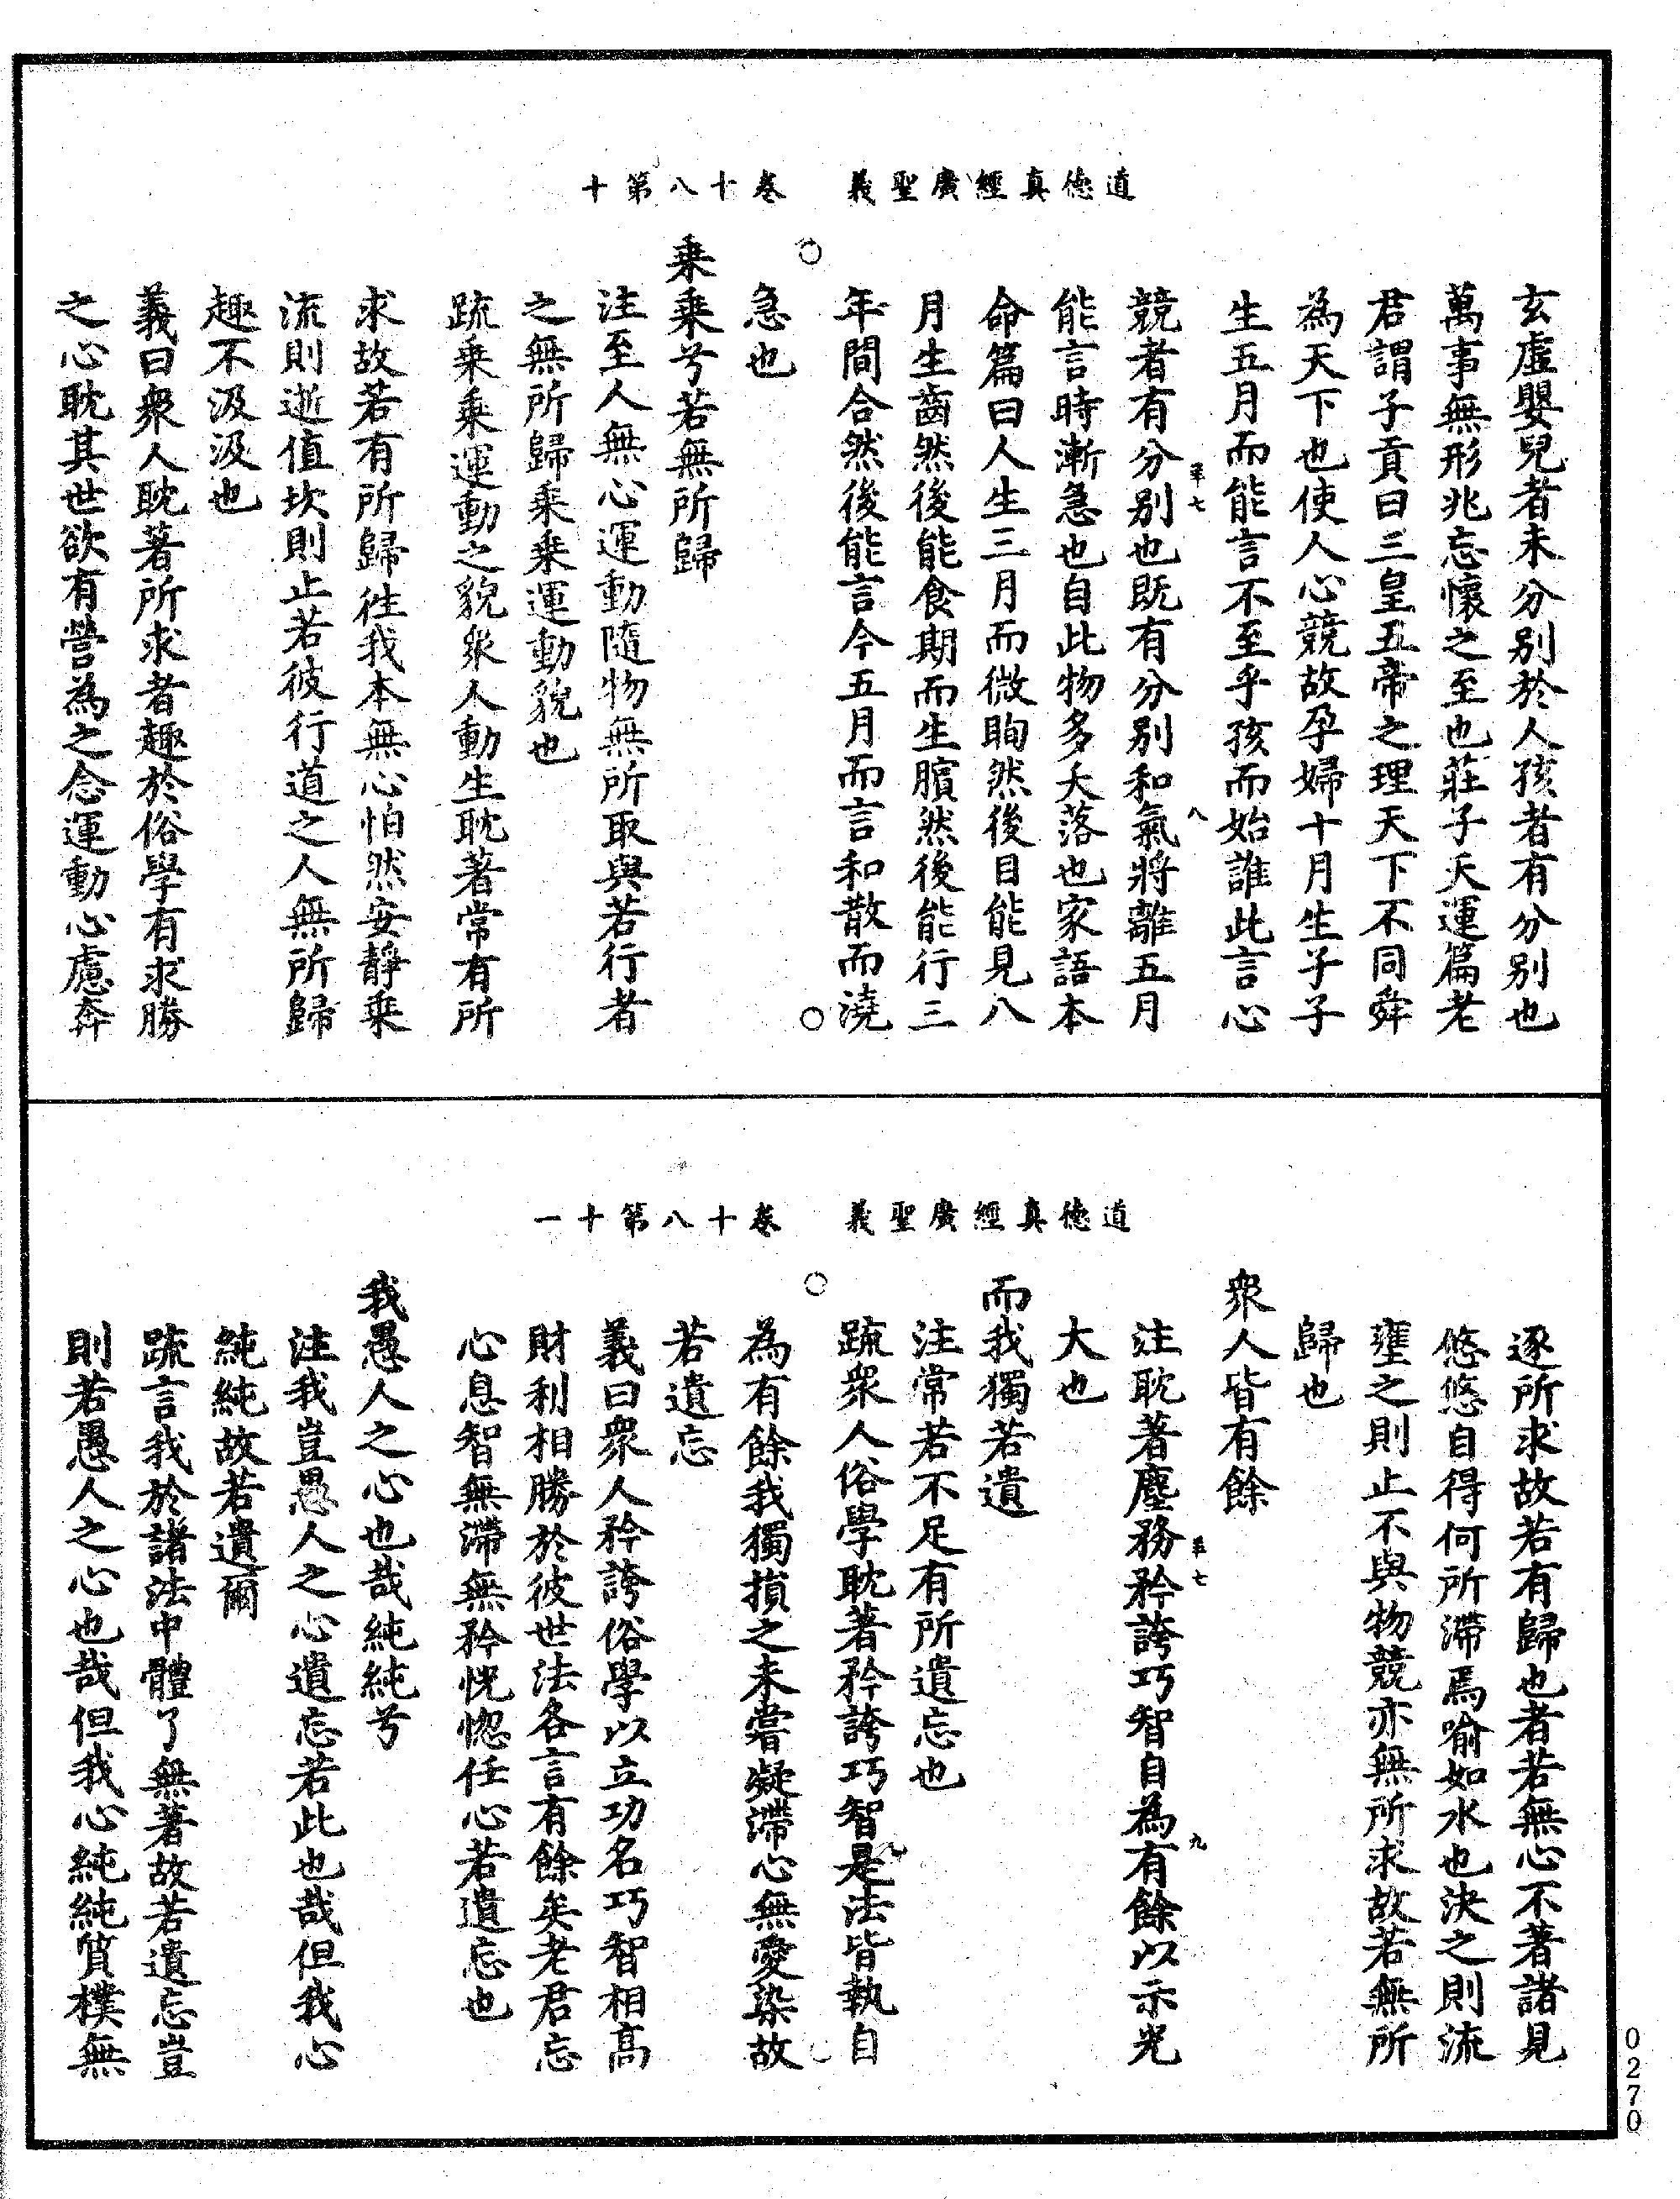 道德真經廣聖義　卷十八第十
玄虛嬰兒者未分别於人孩者有分别也
萬事無形兆忘懷之至也莊子天運篇老
君謂子貢曰三皇五帝之理天下不同舜
為天下也使人心競故孕婦十月生子子
生五月而能言不至乎孩而始誰此言心
競者有分别也既有分别和氣將離五月
能言時漸急也自此物多夭落也家語本
命篇曰人生三月而微眴然後目能見八
月生齒然後能食期而生臏然後能行三
年間合然後能言今五月而言和散而澆
急也
乘乘兮若無所歸
注至人無心運動隨物無所取與若行者
之無所歸乘乘運動貌也
疏乘乘運動之貌衆人動生耽著常有所
求故若有所歸往我本無心怕然安靜乘
流則逝值坎則止若彼行道之人無所歸
趣不汲汲也
義曰衆人耽著所求者趣於俗學有求勝
之心耽其世欲有營為之念運動心慮奔
道德真經廣聖義　卷十八第十一
逐所求故若有歸也者若無心不著諸見
悠悠自得何所滯焉喻如水也決之則流
壅之則止不與物競亦無所求故若無所
歸也
衆人皆有餘
注耽著塵務矜誇巧智自為有餘以示光
大也
而我獨若遺
注常若不足有所遺忘也
疏衆人俗學耽著矜誇巧智是法皆執自
為有餘我獨損之未嘗凝滯心無愛染故
若遺忘
義曰衆人矜誇俗學以立功名巧智相高
財利相勝於彼世法各言有餘矣老君忘
心息智無滯無矜恍惚任心若遺忘也
我愚人之心也哉純純兮
注我豈愚人之心遺忘若此也哉但我心
純純故若遺爾
疏言我於諸法中體了無著故若遺忘豈
則若愚人之心也哉但我心純純質樸無
0270